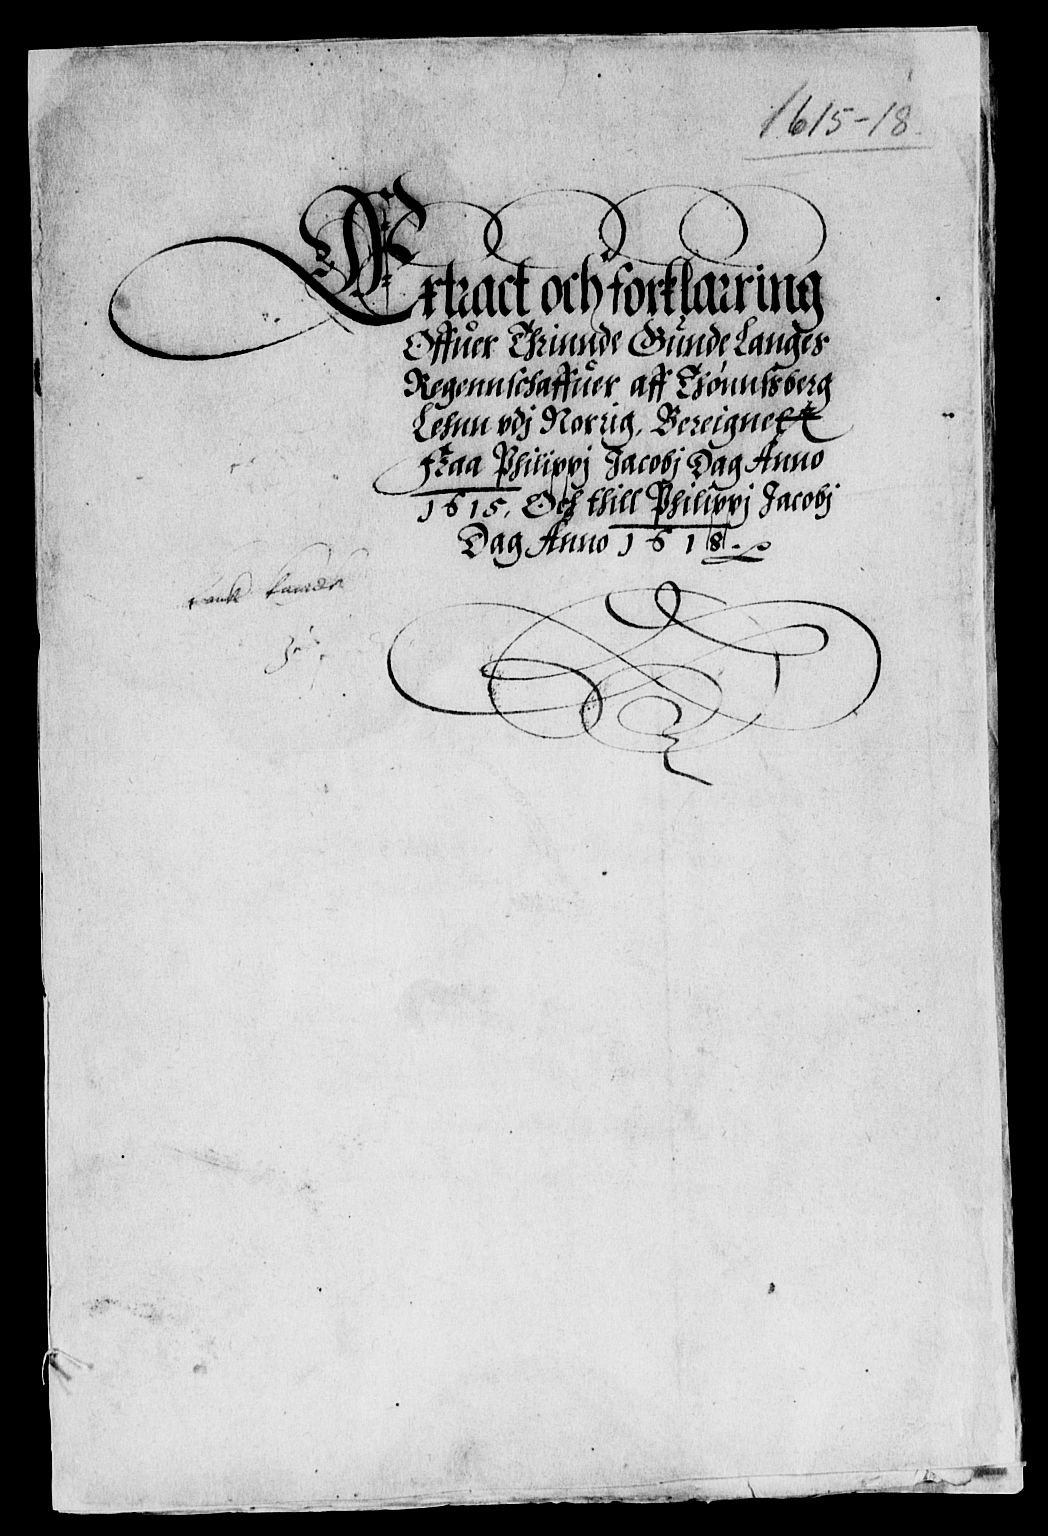 1615-18.
Extract och forklarring
Offuer Thrinnde Gunde Langes
Regennschaffuer aff Thønnsberg
Lehnn vdj Norrig, Bereignett
fraa Philippj Jacobj Dag Anno
1615, Och thill Philippj Jacobj
Dag Anno 1618.